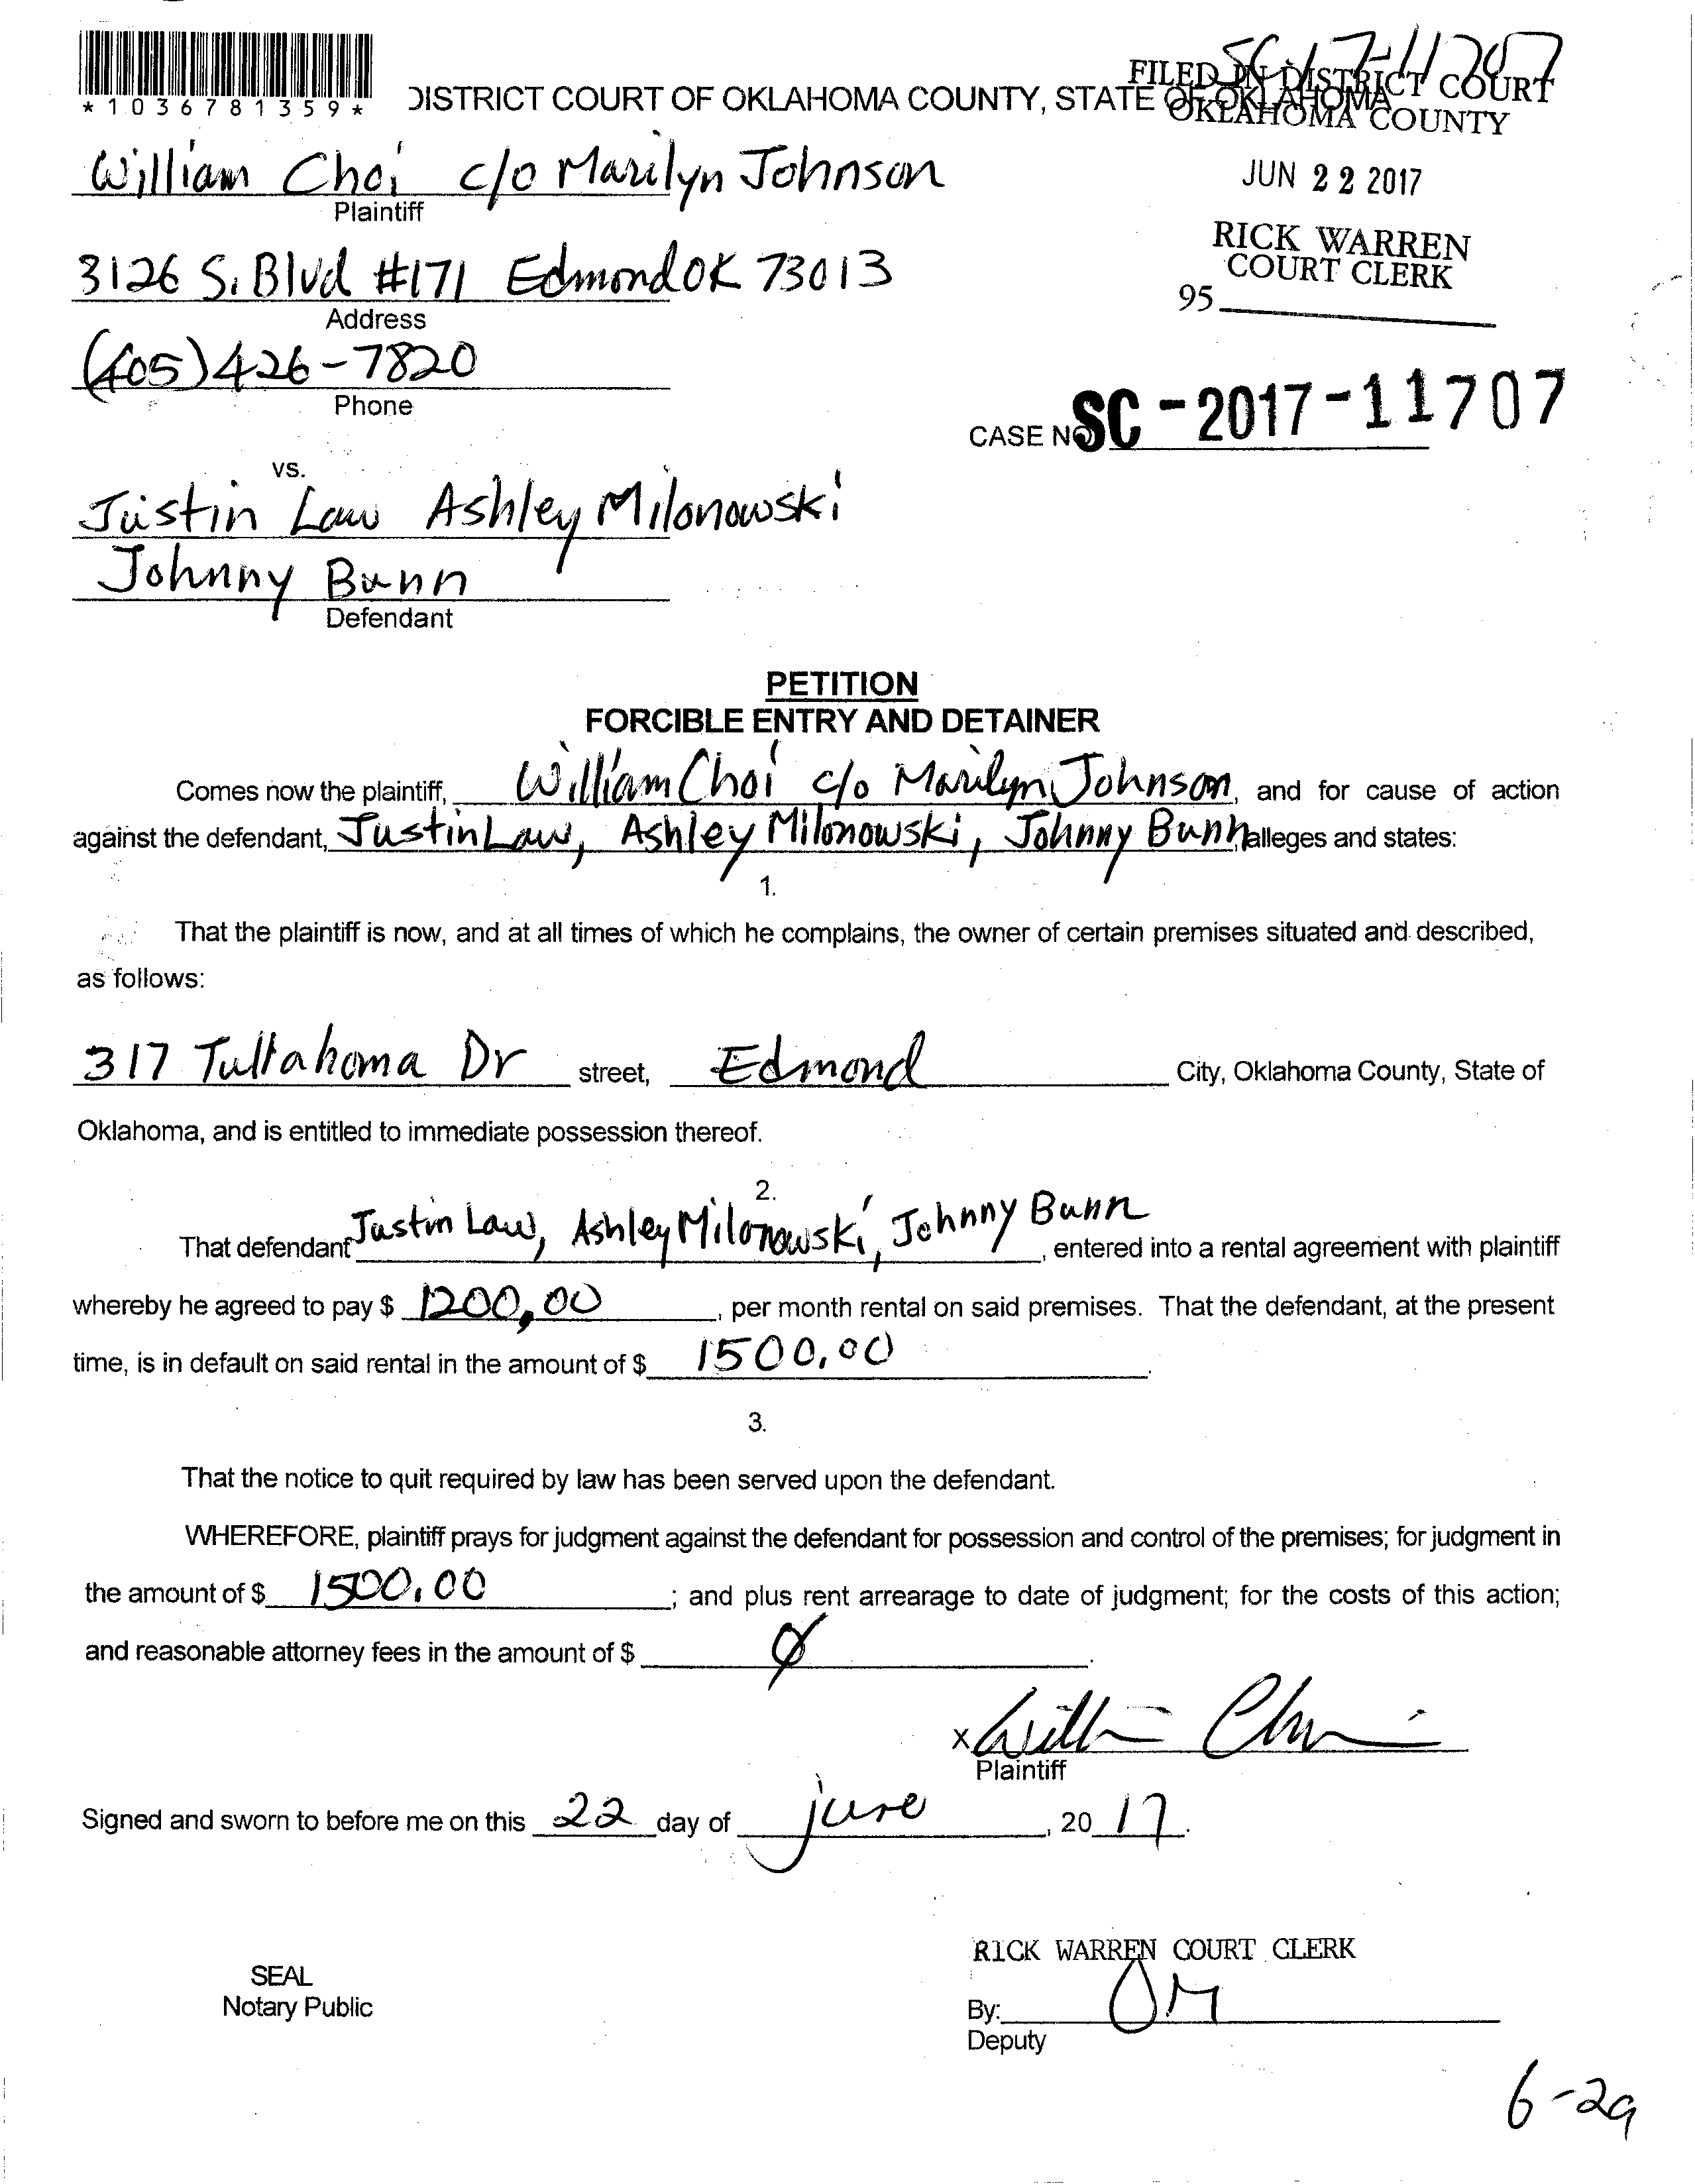 SC 17-11707
*1036781359*
DISTRICT COURT OF OKLAHOMA COUNTY, STATE OF OKLAHOMA
FILED IN DISTRICT COURT
OKLAHOMA COUNTY
JUN 22 2017
RICK WARREN
COURT CLERK
95
William Choi c/o Marilyn Johnson
Plaintiff
3126 S. Blvd #171 Edmond OK 73013
Address
(405) 426-7820
Phone
CASE NO SC-2017-11707
vs.
Justin Law Ashley Milonowski
Johnny Bunn
Defendant
PETITION
FORCIBLE ENTRY AND DETAINER
Comes now the plaintiff, William Choi c/o Marilyn Johnson, and for cause of action
against the defendant, Justin Law, Ashley Milonowski, Johnny Bunn, alleges and states:
1.
That the plaintiff is now, and at all times of which he complains, the owner of certain premises situated and described,
as follows:
317 Tullahoma Dr street, Edmond City, Oklahoma County, State of
Oklahoma, and is entitled to immediate possession thereof.
2.
That defendant Justin Law, Ashley Milonowski, Johnny Bunn, entered into a rental agreement with plaintiff
whereby he agreed to pay $ 1200.00, per month rental on said premises. That the defendant, at the present
time, is in default on said rental in the amount of $ 1500.00.
3.
That the notice to quit required by law has been served upon the defendant.
WHEREFORE, plaintiff prays for judgment against the defendant for possession and control of the premises; for judgment in
the amount of $ 1500.00; and plus rent arrearage to date of judgment; for the costs of this action;
and reasonable attorney fees in the amount of $ 0.
x William Choi
Plaintiff
Signed and sworn to before me on this 22 day of june, 2017.
RICK WARREN COURT CLERK
SEAL
Notary Public
By: OM
Deputy
6-29